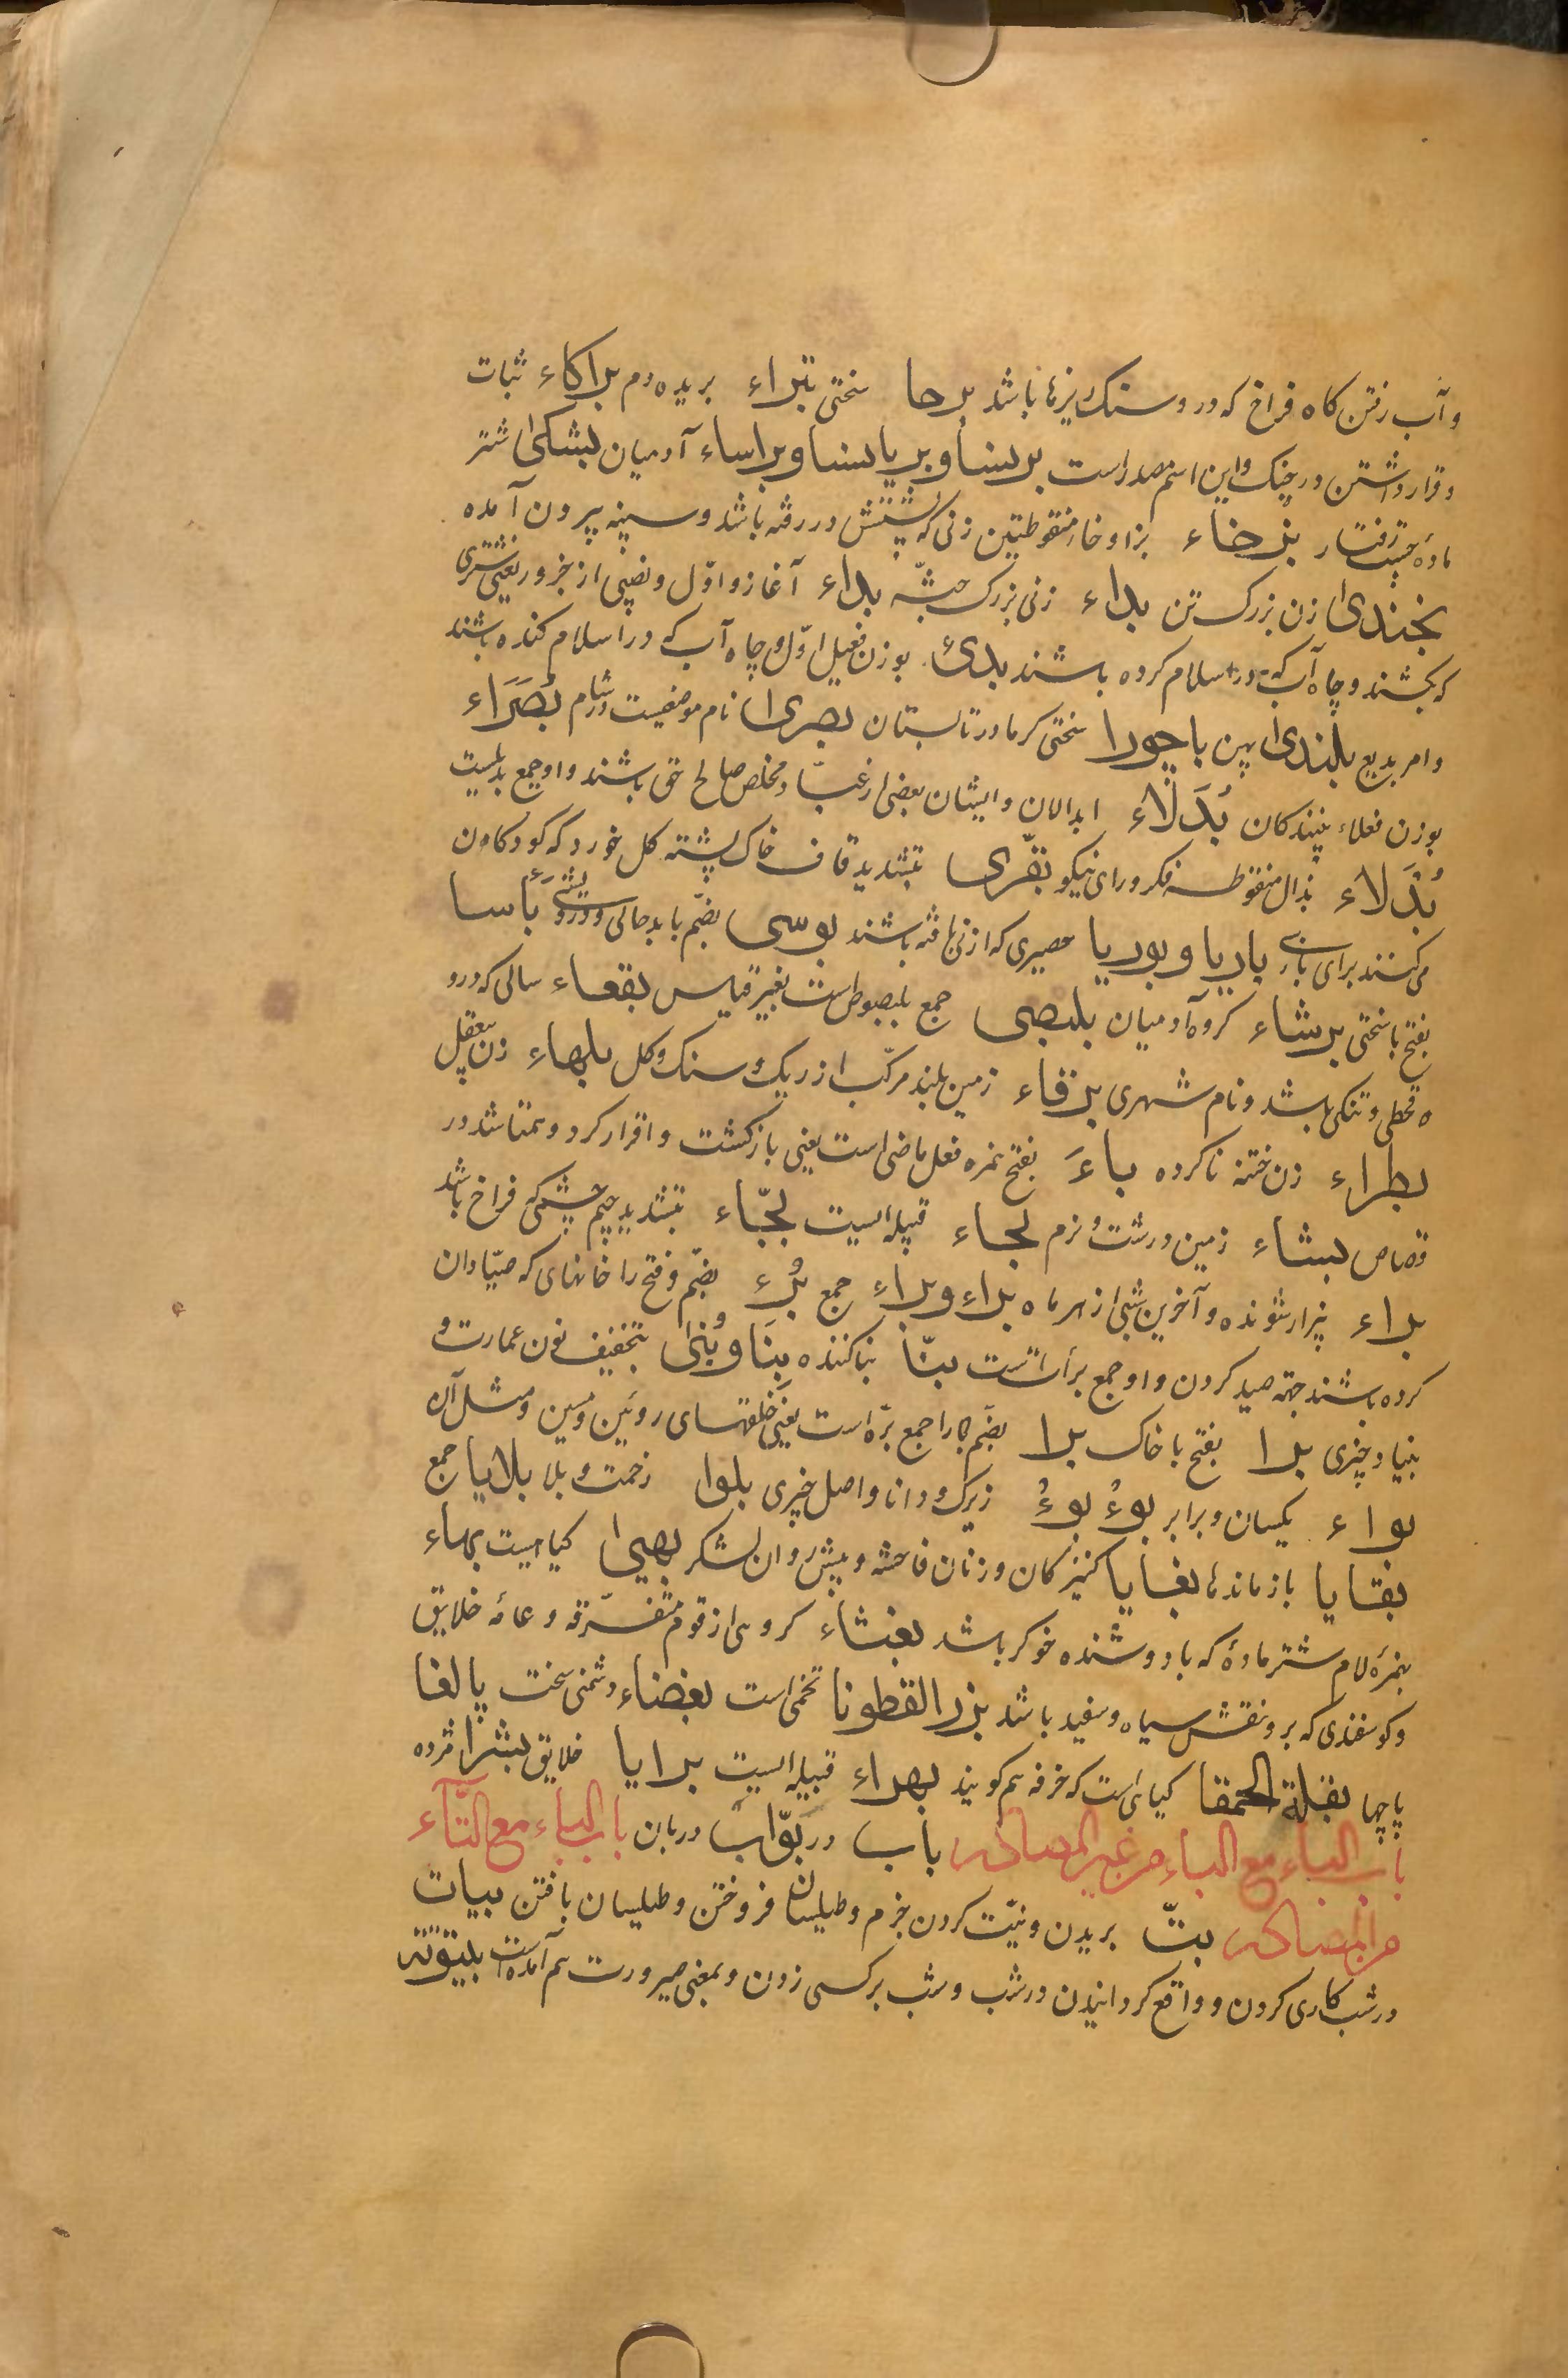 وآب رفتن کاه فراخ که درو سنک ریزها باشد برحا سختی بتراء بریده دم براکاء ثبات
و قرار داشتن در جنک و این اسم مصدر است برنسا و بریانسا و براساء آدمیان بشکی شتر
مادۀ جست رفتار بزخاء بزا و خاء منقوطتین زنی که پشتش در رفته باشد و سینه بیرون آمده
بخندی زن بزرک تن بداء زنی بزرک جثّه بداء آغاز و اوّل و نصیبی از جزور یعنی شتری
که بکشند و چاه آب که در اسلام کرده باشند بدئ بوزن فعیل اوّل و چاه آب که در اسلام کنده باشند
و امر بدیع بلندی پهن باحورا سختی کرما در تابستان بصری نام موضعیست در شام بُصَرَاء
بوزن فعلاء بینندکان بُدَلَاء ابدالان و ایشان بعضی از عبّاد مخلص صالح حق باشند و او جمع بدلیست
بُذَلاء بذال منقوطه فکر و رای نیکو بقّری بتشدید قاف خاک پشته کل خورد که کودکان
می کنند برای بازی باریا و بوریا حصیری که از نی بافته باشند بوسی بضمّ با بد حالی و درویشی بَأسا
بفتح با سختی برشاء کروه آدمیان بلبصی جمع بلبصوص است بغیر قیاس بقعاء سالی که درو
قحطی و تنکی باشد و نام شهری برقاء زمین بلند مرکّب از ریک و سنک و کل بلهاء زن بیعقل
بظراء زن ختنه ناکرده باءَ بفتح همزه فعل ماضی است یعنی بازکشت و اقرار کرد و همتا شد در
قصاص بشاء زمین درشت و نرم بجاء قبیله ایست بجّاء بتشدید جیم چشمی که فراخ باشد
براء بیزار شونده و آخرین شبی از هر ماه براء و براء جمع بُرء بضمّ و فتح را خانهای که صیّادان
کرده باشند جهة صید کردن و او جمع برأت است بنّا بنا کننده بِنَا و بُنی بتخفیف نون عمارت و
بنیاد چیزی برا بفتح با خاک برا بضمّ با را جمع بره است یعنی حلقهای روئین و مسین و مثل آن
بواء یکسان و برابر بوءُ بوءُ زیرک و دانا و اصل چیزی بلوا زحمت و بلا بلایا جمع
بقایا بازماندها بغایا کنیزکان و زنان فاحشه و پیش روان لشکر بهمی کیاهیست بهاء
بهمزۀ لام شتر مادۀ که با دوشنده خوکر باشد بغثاء کروهی از قوم متفرّقه و عامّه خلایق
و کوسفندی که برو نقش سیاه و سفید باشد بزر القطونا تخمی است بغضاء دشمنی سخت پالغا
پاچها بقلة الحمقا کیاهی است که خرفه هم کویند بهراء قبیله ایست برایا خلایق بشرا مژده
باب الباء مع الباء من غیر المصادر باب در بوّاب دربان باب الباء مع التّاء
من المصادر بتّ بریدن و نیّت کردن جزم و طیلسان فروختن و طیلسان بافتن بیات
در شب کاری کردن و واقع کردانیدن در شب و شب بر کسی زدن و بمعنی صیرورت هم آمده است بیتوته